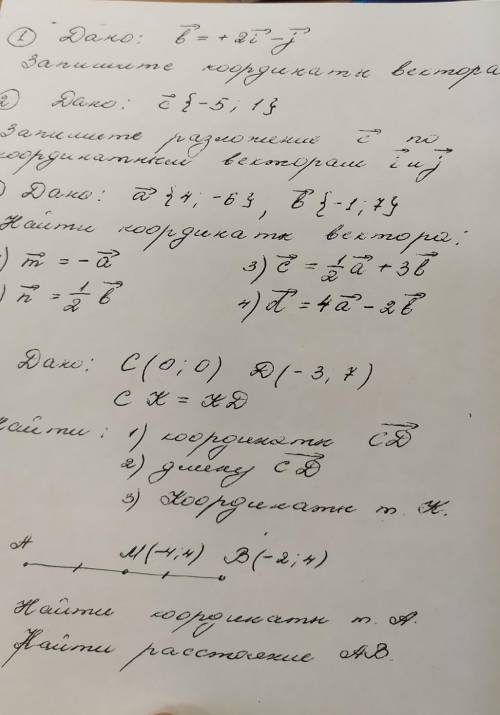 ① Дано: b⃗ = + 2i⃗ – j⃗
Запишите координаты вектора
2) Дано: c⃗ {-5; 1}
Запишите разложение c⃗ по
координатным векторам i⃗ и j⃗
) Дано: a⃗ {4; -6}, b⃗ {-1; 7}
Найти координаты вектора:
) m⃗ = -a⃗ 3) c⃗ = 1/2 a⃗ + 3b⃗
) n⃗ = 1/2 b⃗ 4) d⃗ = 4a⃗ - 2b⃗
Дано: C(0; 0) D(-3, 7)
CK = KD
Найти: 1) координаты CD⃗
2) длину CD⃗
3) Координаты т. K.
A M(-4; 4) B(-2; 4)
Найти координаты т. A.
Найти расстояние AB.